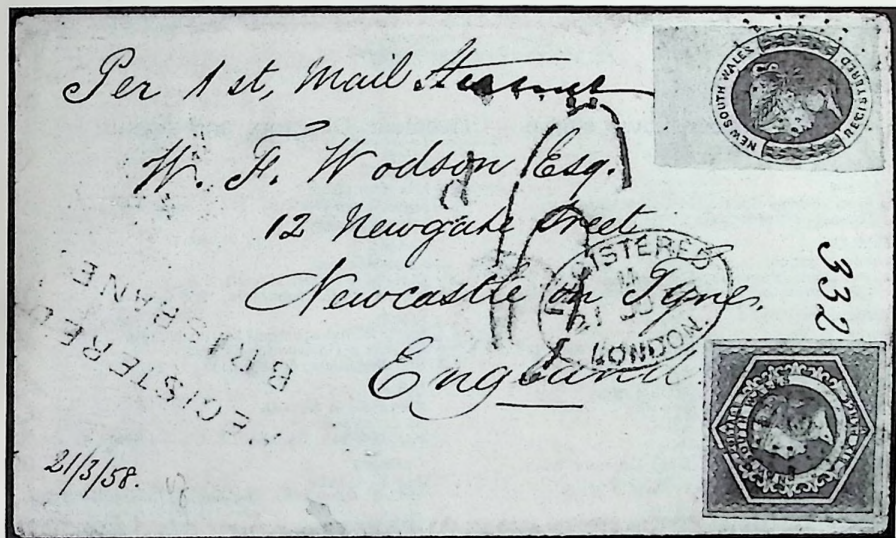 Per 1st, Mail Steamer
NEW SOUTH WALES
REGISTERED
W. F. Wodson Esq.
12 Newgate Street
Newcastle on Tyne,
England.
REGISTERED
LONDON
332
EGISTERED
BRISBANE
21/3/58.
SOUTH WALES